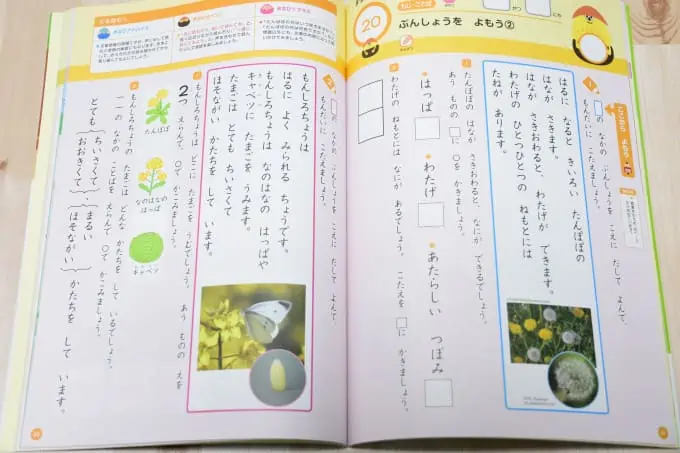 20
ぶんしょうを よもう②
ここから よもう
1 □の なかの ぶんしょうを こえに だして よんで、
もんだいに こたえましょう。
はるに なると きいろい たんぽぽの
はなが さきます。
はなが さきおわると、わたげが できます。
わたげの ひとつひとつの ねもとには
たねが あります。
たんぽぽの はなが さきおわると、なにが できるでしょう。
あう ものの □に ○を かきましょう。
はっぱ
わたげ
あたらしい つぼみ
わたげの ねもとには なにが あるでしょう。 こたえを □に かきましょう。
2 □の なかの ぶんしょうを こえに だして よんで、
もんだいに こたえましょう。
もんしろちょうは
はるに よく みられる ちょうです。
もんしろちょうは なのはなの はっぱや
キャベツに たまごを うみます。
たまごは とても ちいさくて
ほそながい かたちを して います。
もんしろちょうは どこに たまごを うむでしょう。 あう ものの えを
2つ えらんで、○で かこみましょう。
たんぽぽ
なのはなの
はっぱ
キャベツ
もんしろちょうの たまごは どんな かたちを して いるでしょう。
――の なかの ことばを えらんで、○で かこみましょう。
とても
ちいさくて
おおきくて
、
まるい
ほそながい
かたちを して います。